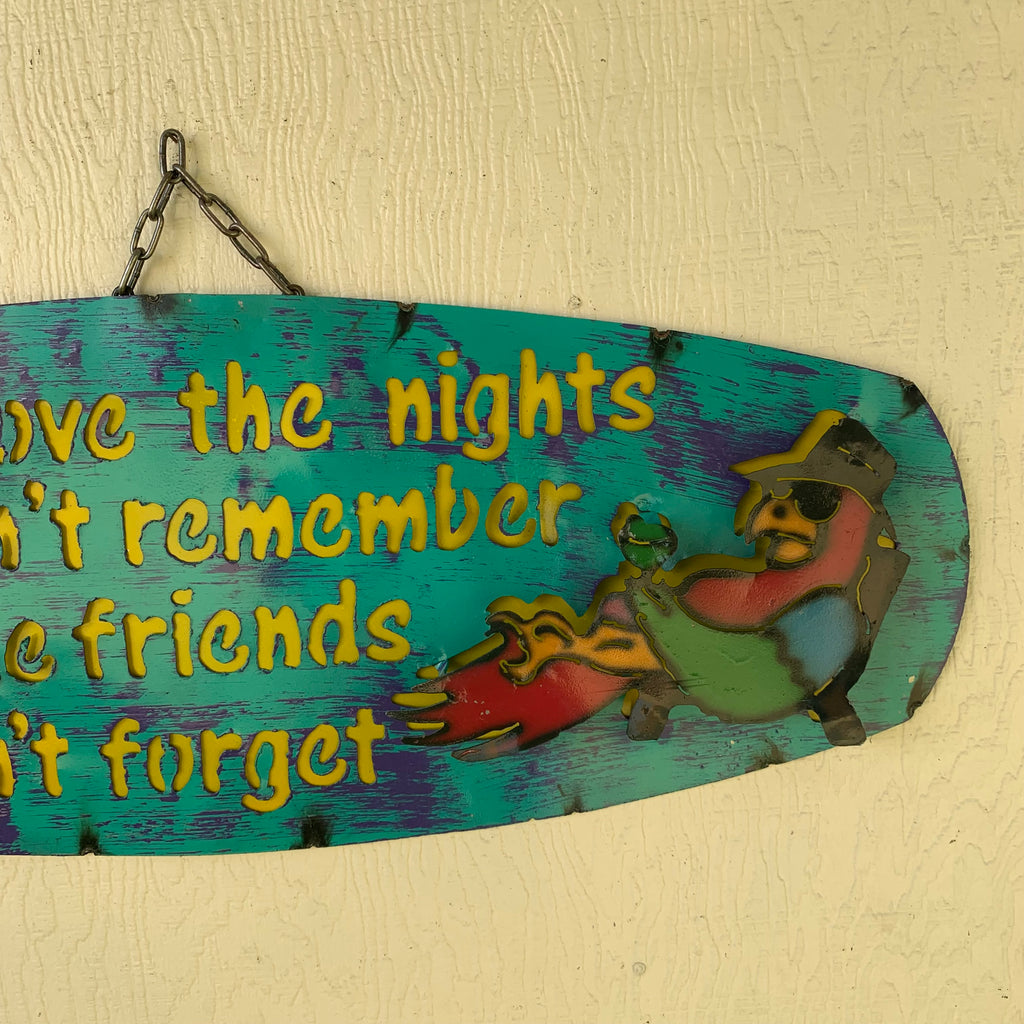 ove the nights
n't remember
e friends
n't forget